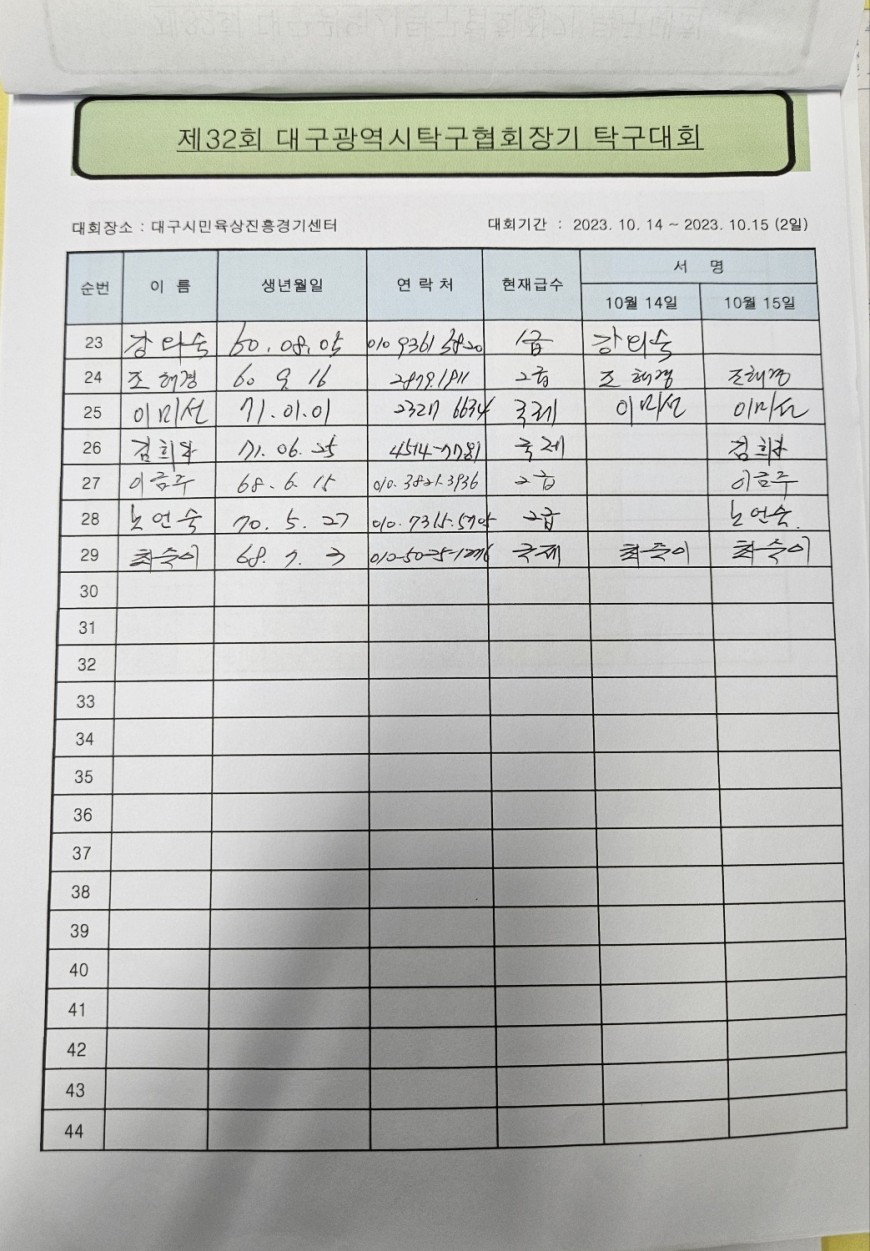 제32회 대구광역시탁구협회장기 탁구대회
대회장소 : 대구시민육상진흥경기센터 대회기간 : 2023. 10. 14 ~ 2023. 10.15 (2일)
순번 이 름 생년월일 연 락 처 현재급수 서 명
10월 14일 10월 15일
23 60. 08. 05 010 9361 3820 1급
24 조해경 60 9 16 2879.1811 2급 조해경 조해경
25 이미선 71.01.01 2327 6634 국제 이미선 이미선
26 71. 06. 25 4514-7781 국제
27 이금주 68. 6. 15 010.3821.3936 2급 이금주
28 노언숙 70. 5. 27 2급 노언숙
29 68. 7. 3 국제
30
31
32
33
34
35
36
37
38
39
40
41
42
43
44